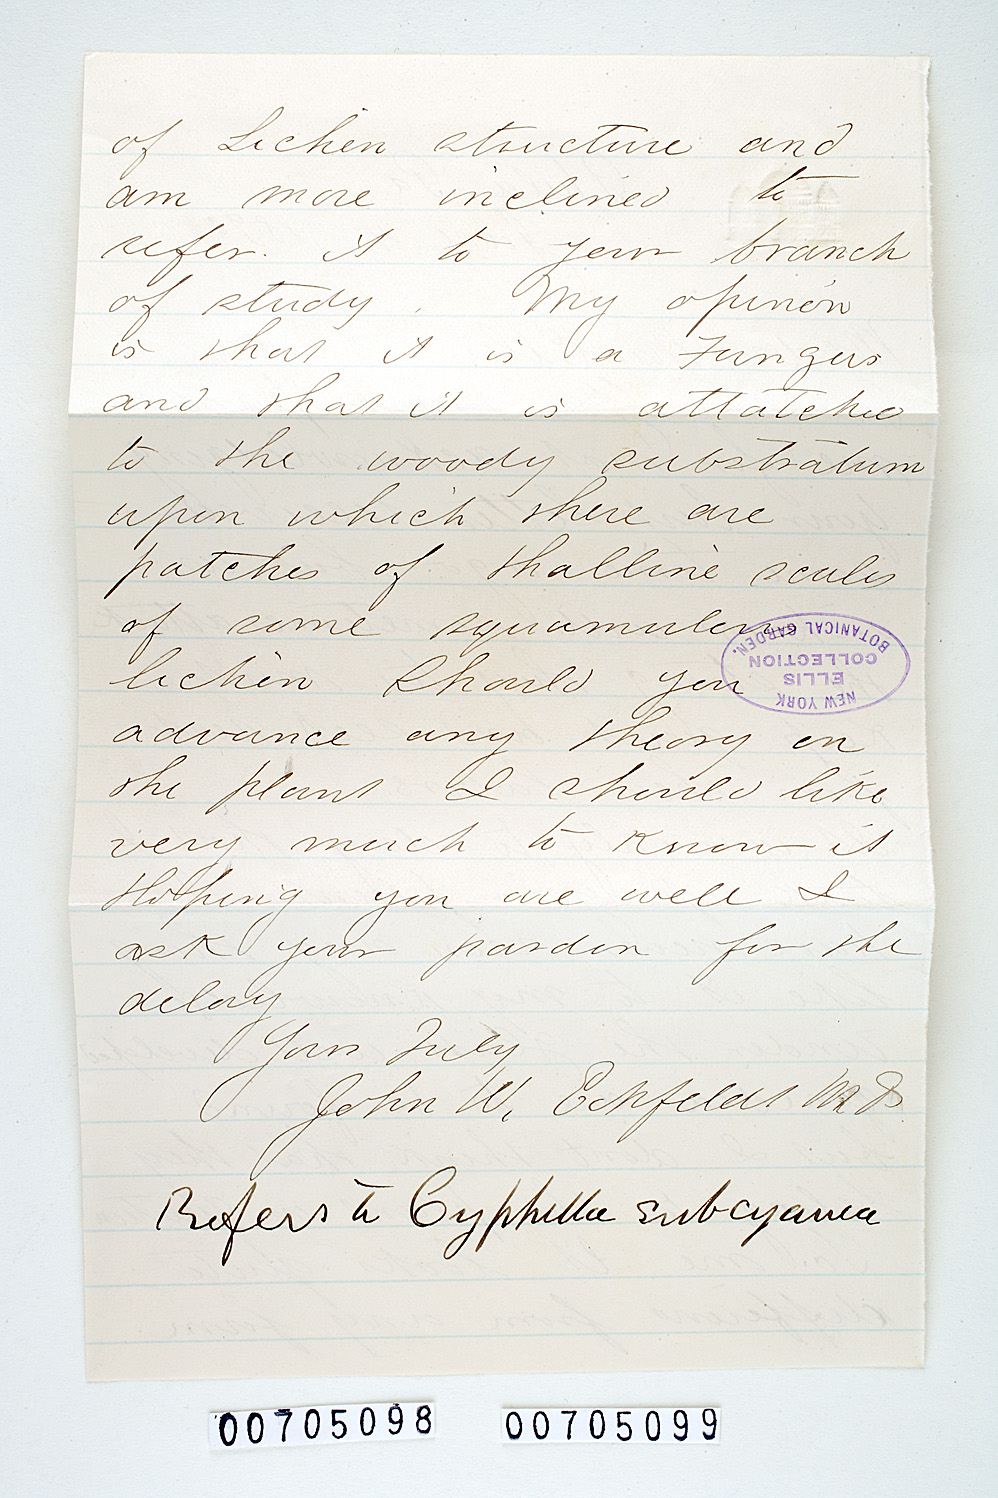 of Lichen structure and
am more inclined to
refer. it to your branch
of study. My opinion
is that it is a Fungus
and that it is attatched
to the woody substratum
upon which there are
patches of thalline scales
of some squamulen
lichen Should you
advance any theory on
the plant I should like
very much to know it
Hoping you are well I
ask your pardon for the
delay
Yours Truly
John W. Eckfeldt MD
Refers to Cyphella subcyanea
NEW YORK
ELLIS
COLLECTION
BOTANICAL GARDEN.
00705098 00705099